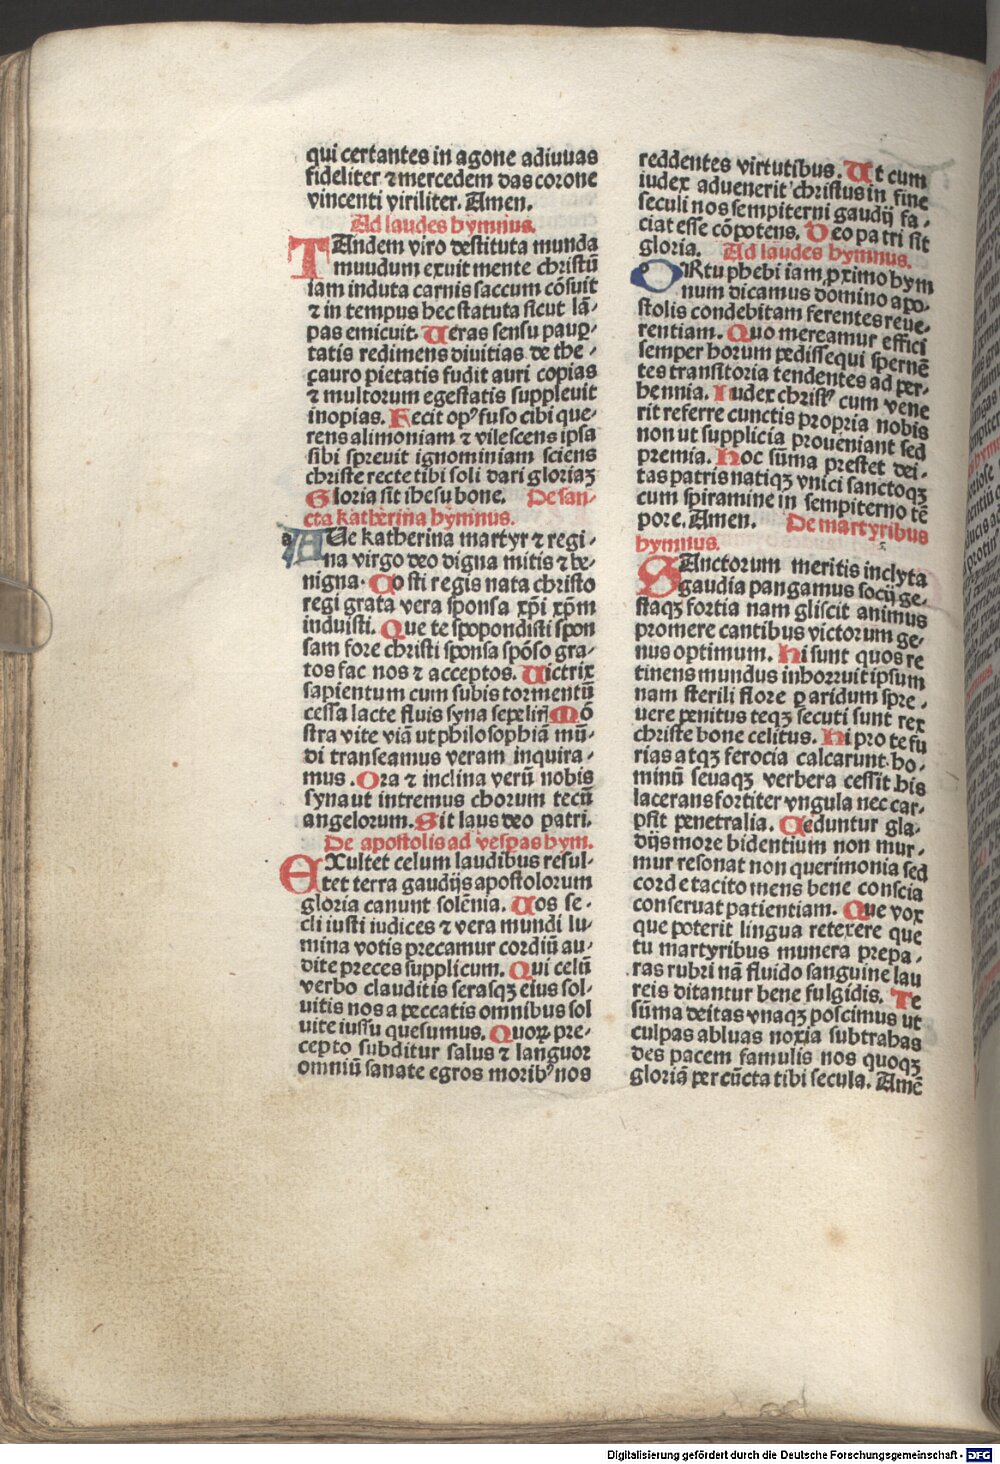 qui certantes in agone adiuuas
fideliter ⁊ mercedem das corone
vincenti viriliter. Amen.
Ad laudes hymnus.
TAndem viro destituta munda
muudum exuit mente christū
iam induta carnis saccum cōsuit
⁊ in tempus hec statuta sicut lā-
pas emicuit. Ueras sensu paup̲-
tatis redimens diuitias de the-
çauro pietatis fudit auri copias
⁊ multorum egestatis suppleuit
inopias. Fecit opꝰ fuso cibi que-
rens alimoniam ⁊ vilescens ipsa
sibi spreuit ignominiam sciens
christe recte tibi soli dari gloriaꝫ
Gloria sit ihesu bone. De san-
cta katherina hymnus.
AUe katherina martyr ⁊ regi-
na virgo deo digna mitis ⁊ be-
nigna. Costi regis nata christo
regi grata vera sponsa xp̄i xp̄m
induisti. Que te spopondisti spon
sam fore christi sponsa spōso gra-
tos fac nos ⁊ acceptos. Uictrix
sapientum cum subis tormentū
cessa lacte fluis syna sepelirꝭ Mō
stra vite viā ut philosophiā mū-
di transeamus veram inquira-
mus. Ora ⁊ inclina verū nobis
syna ut intremus chorum tecū
angelorum. Sit laus deo patri.
De apostolis ad vesꝑas hym.
EXultet celum laudibus resul-
tet terra gaudijs apostolorum
gloria canunt solēnia. Uos se-
cli iusti iudices ⁊ vera mundi lu-
mina votis precamur cordiū au-
dite preces supplicum. Qui celū
verbo clauditis serasqꝫ eius sol-
uitis nos a peccatis omnibus sol
uite iussu quesumus. Quoꝝ pre-
cepto subditur salus ⁊ languor
omniū sanate egros moribꝰ nos
reddentes virtutibus. Ut cum
iudex aduenerit christus in fine
seculi nos sempiterni gaudij fa-
ciat esse cōpotens. Deo patri sit
gloria. Ad laudes hymnus.
ORtu phebi iam ꝓximo hym
num dicamus domino apo-
stolis condebitam ferentes reue-
rentiam. Quo mereamur effici
semper horum pedissequi spernē
tes transitoria tendentes ad per-
hennia. Iudex christꝰ cum vene
rit referre cunctis propria nobis
non ut supplicia proueniant sed
premia. Hoc sūma prestet dei-
tas patris natiqꝫ vnici sanctoqꝫ
cum spiramine in sempiterno tē
pore. Amen. De martyribus
hymnus.
SAnctorum meritis inclyta
gaudia pangamus socij ge-
staqꝫ fortia nam gliscit animus
promere cantibus victorum ge-
nus optimum. Hi sunt quos re
tinens mundus inhorruit ipsum
nam sterili flore ꝑaridum spre-
uere penitus teqꝫ secuti sunt rex
christe bone celitus. Hi pro te fu
rias atqꝫ ferocia calcarunt ho-
minū seuaqꝫ verbera cessit his
lacerans fortiter vngula nec car-
psit penetralia. Ceduntur gla-
dijs more bidentium non mur-
mur resonat non querimonia sed
corde tacito mens bene conscia
conseruat patientiam. Que vox
que poterit lingua retexere que
tu martyribus munera prepa-
ras rubri nā fluido sanguine lau
reis ditantur bene fulgidis. Te
sūma deitas vnaqꝫ poscimus ut
culpas abluas noxia subtrahas
des pacem famulis nos quoqꝫ
gloriā per cūcta tibi secula. Amē
Digitalisierung gefördert durch die Deutsche Forschungsgemeinschaft - DFG